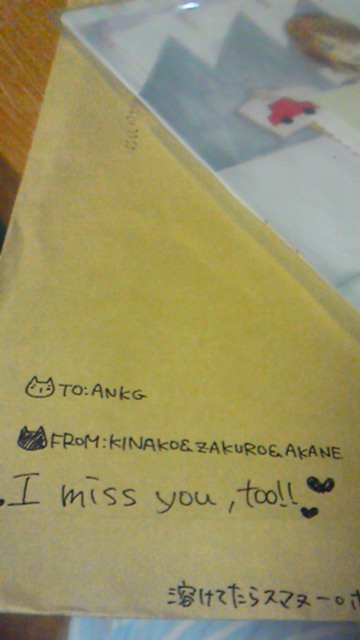 TO:ANKG
FROM:KINAKO&ZAKURO&AKANE
I miss you, too!!
溶けてたらスマヌー